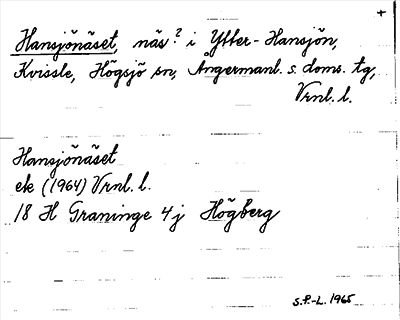 +
Hansjönäset, näs? i Ytter-Hansjön,
Kvissle, Högsjö sn, Ångermanl. s. doms. tg,
Vrnl. l.
Hansjönäset
ek (1964) Vrnl. l.
18 H Graninge 4j Högberg
S.F.-L. 1965